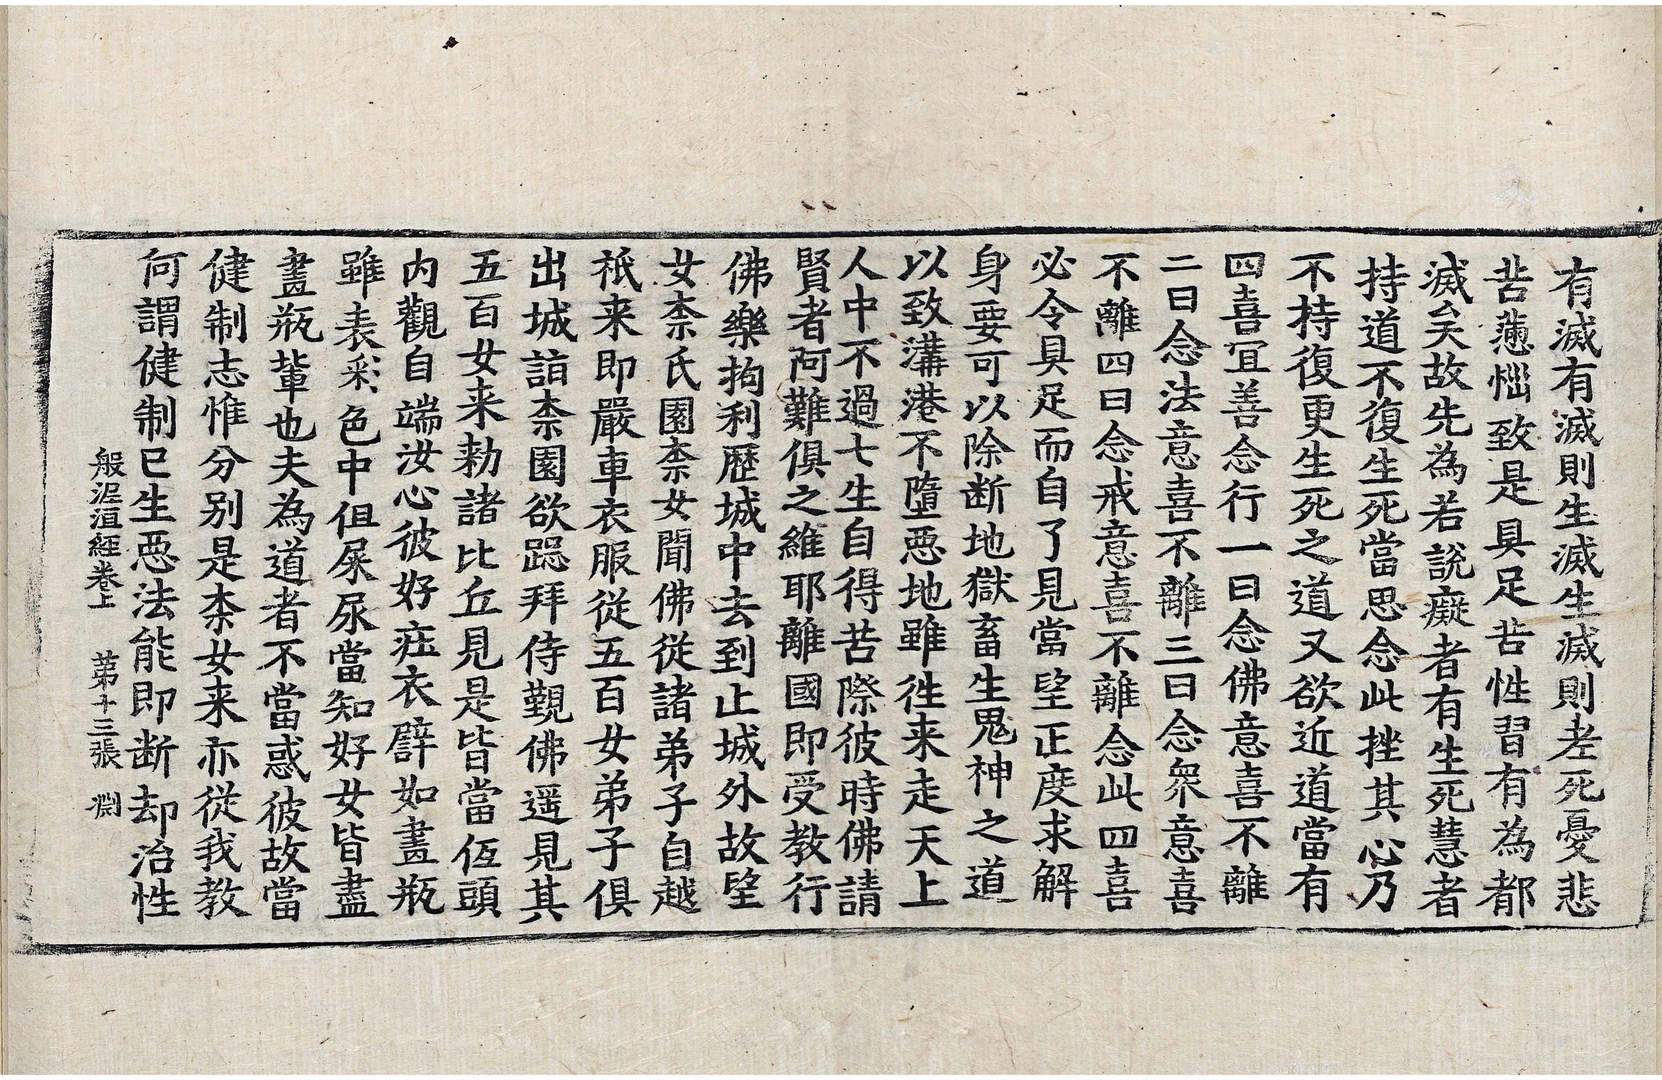 有滅有滅則生滅生滅則老死憂悲
苦懣惱致是具足苦性習有為都
滅矣故先為若說癡者有生死慧者
持道不復生死當思念此挫其心乃
不持復更生死之道又欲近道當有
四喜宜善念行一曰念佛意喜不離
二曰念法意喜不離三曰念衆意喜
不離四曰念戒意喜不離念此四喜
必令具足而自了見當望正度求解
身要可以除断地獄畜生鬼神之道
以致溝港不墮惡地雖往来走天上
人中不過七生自得苦際彼時佛請
賢者阿難俱之維耶離國即受教行
佛樂拘利歷城中去到止城外故望
女柰氏園柰女聞佛從諸弟子自越
祇来即嚴車衣服從五百女弟子俱
出城詣柰園欲跽拜侍覲佛遥見其
五百女来勑諸比丘見是皆當佢頭
内觀自端汝心彼好在衣譬如畫瓶
雖表彩色中但屎尿當知好女皆盡
畫瓶輩也夫為道者不當惑彼故當
健制志惟分別是柰女来亦從我教
何謂健制已生惡法能即断却治性
般泥洹經卷上 第十三張 淵